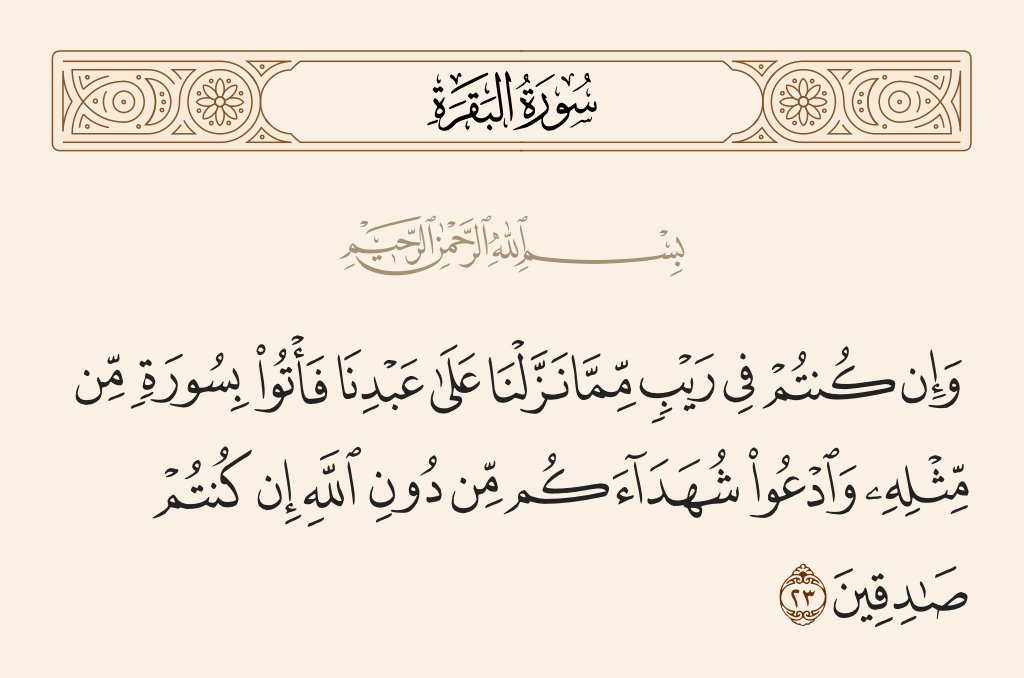 سُورَةُ البَقَرَةِ
بِسْمِ ٱللَّهِ ٱلرَّحْمَٰنِ ٱلرَّحِيمِ
وَإِن كُنتُمْ فِى رَيْبٍ مِّمَّا نَزَّلْنَا عَلَىٰ عَبْدِنَا فَأْتُوا۟ بِسُورَةٍ مِّن
مِّثْلِهِۦ وَٱدْعُوا۟ شُهَدَآءَكُم مِّن دُونِ ٱللَّهِ إِن كُنتُمْ
صَـٰدِقِينَ ٢٣